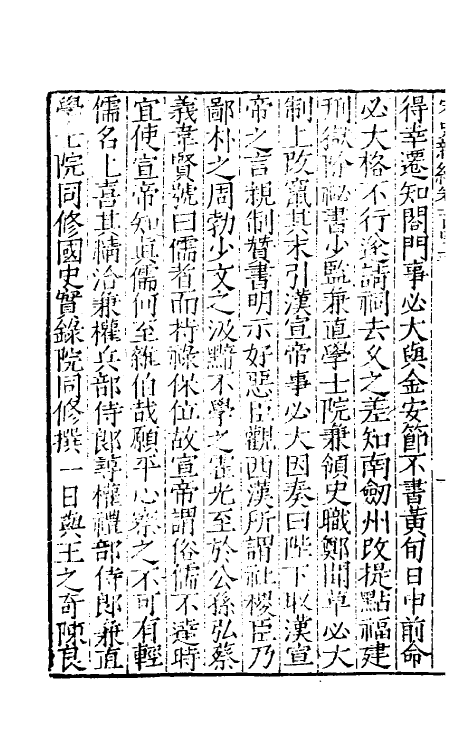 宋史新編卷一百四十
得幸遷知閤門事必大與金安節不書黃旬日申前命
必大格不行遂請祠去久之差知南劔州改提點福建
刑獄除祕書少監兼直學士院兼領史職鄭聞草必大
制上改竄其末引漢宣帝事必大因奏曰陛下取漢宣
帝之言親制贊書明示好惡臣觀西漢所謂社稷臣乃
鄙朴之周勃少文之汲黯不學之霍光至於公孫弘蔡
義韋賢號曰儒者而持祿保位故宣帝謂俗儒不達時
宜使宣帝知眞儒何至雜伯哉願平心察之不可有輕
儒名上喜其精洽兼權兵部侍郎尋權禮部侍郎兼直
學士院同修國史實錄院同修撰一日與王之奇陳良